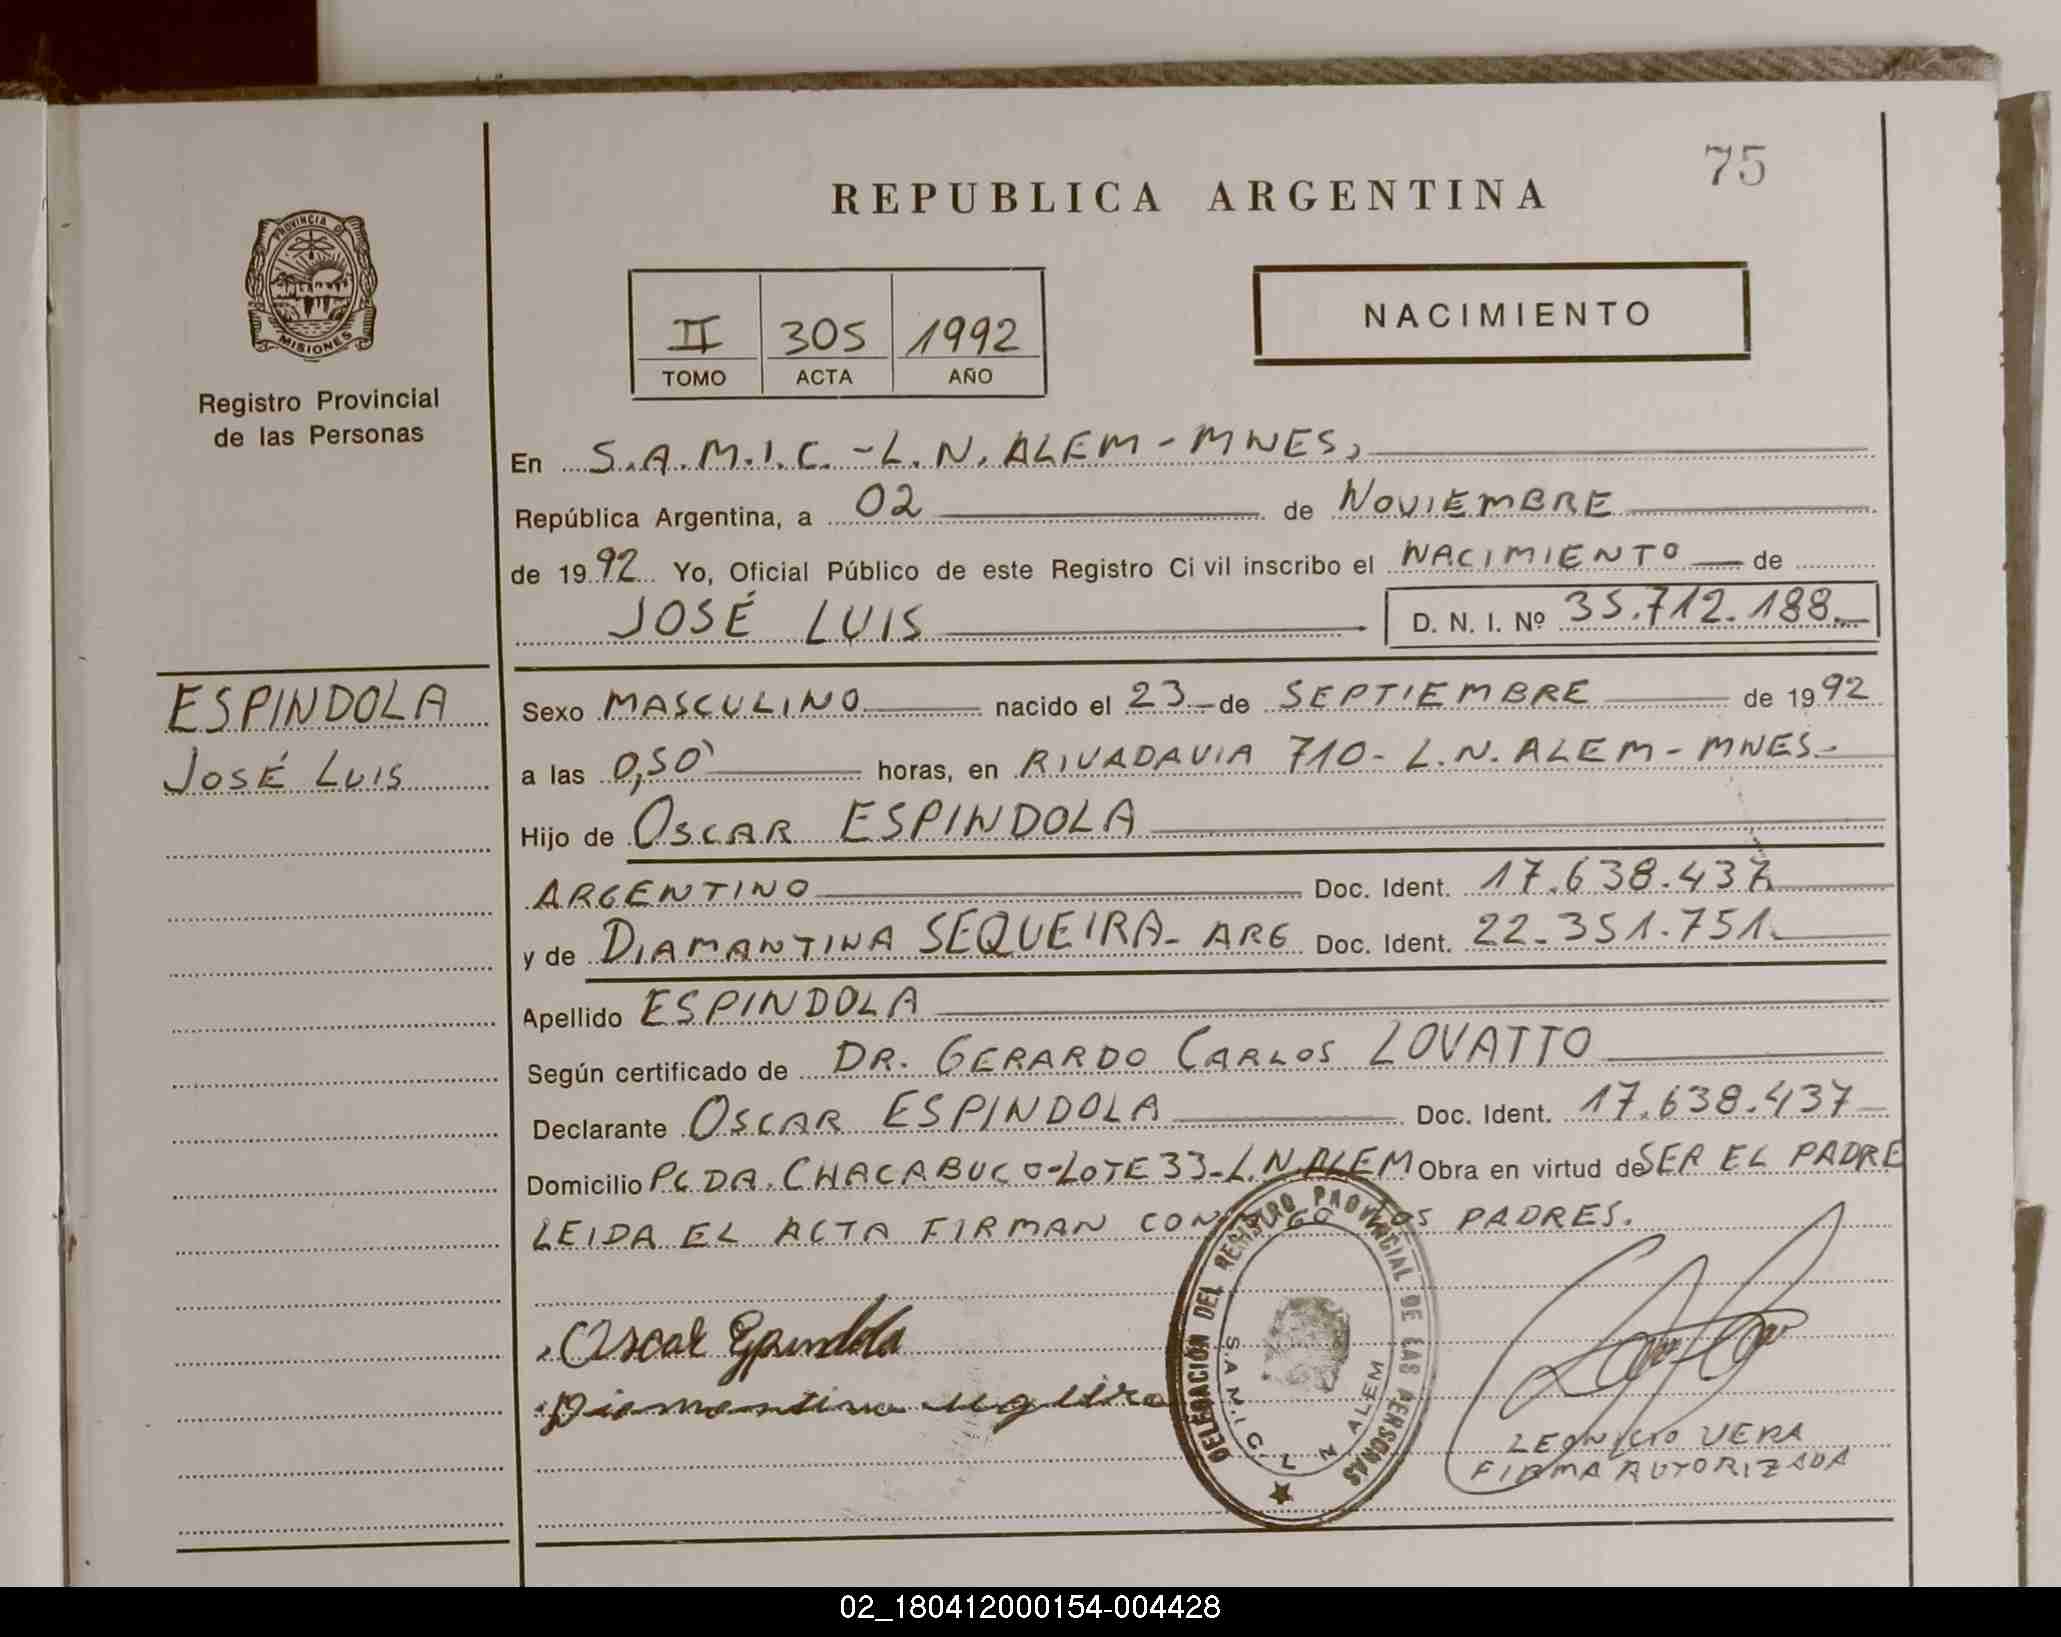 75
REPUBLICA ARGENTINA
PROVINCIA DE
MISIONES
Registro Provincial
de las Personas
II 305 1992
TOMO ACTA AÑO
NACIMIENTO
En S.A.M.I.C. - L.N. ALEM - MNES,
República Argentina, a 02 de NOVIEMBRE
de 1992 Yo, Oficial Público de este Registro Civil inscribo el NACIMIENTO de
JOSÉ LUIS D. N. I. Nº 35.712.188.
ESPINDOLA
JOSÉ LUIS
Sexo MASCULINO nacido el 23 de SEPTIEMBRE de 1992
a las 0,50' horas, en RIVADAVIA 710 - L.N. ALEM - MNES.
Hijo de OSCAR ESPINDOLA
ARGENTINO Doc. Ident. 17.638.437
y de DIAMANTINA SEQUEIRA - ARG Doc. Ident. 22.351.751.
Apellido ESPINDOLA
Según certificado de DR. GERARDO CARLOS LOVATTO
Declarante OSCAR ESPINDOLA Doc. Ident. 17.638.437
Domicilio PCDA. CHACABUCO - LOTE 33 - L.N. ALEM Obra en virtud de SER EL PADRE
LEIDA EL ACTA FIRMAN CONMIGO LOS PADRES.
Oscar Espindola
Diamantina
DELEGACIÓN DEL REGISTRO PROVINCIAL DE LAS PERSONAS
S.A.M.I.C. L N ALEM
LEONICIO VERA
FIRMA AUTORIZADA
02_180412000154-004428